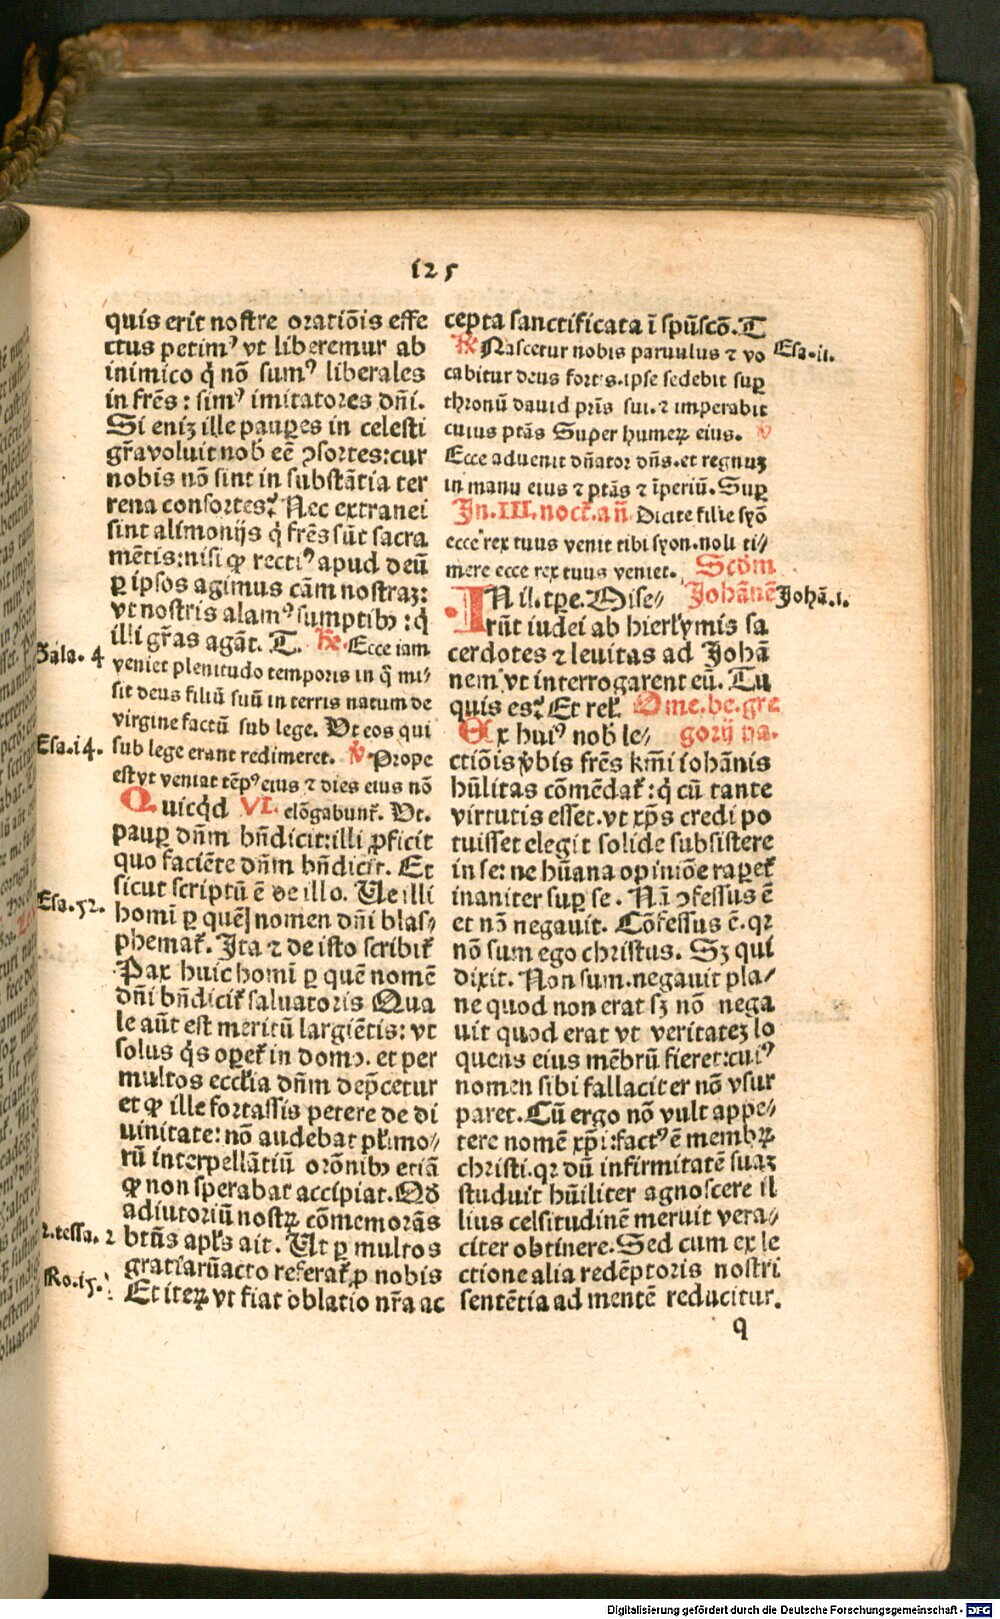 125
quis erit nostre oratiōis effe
ctus petimꝰ vt liberemur ab
inimico q̇ nō sumꝰ liberales
in frēs: simꝰ imitatores dñi.
Si eniʒ ille paup̲es in celesti
gr̄a voluit nob̄ eē ↄsortes: cur
nobis nō sint in substātia ter
rena consortes? Nec extranei
sint alimonijs q̇ frēs sūt sacra
mētis: nisi qꝫ rectiꝰ apud deū
ꝑ ipsos agimus cām nostraʒ:
vt nostris alamꝰ sumptibꝫ: q̇
illi gr̄as agāt. T. ℟. Ecce iam
Gala. 4
veniet plenitudo temporis in q̄ mi⸗
sit deus filiū suū in terris natum de
virgine factū sub lege. Vt eos qui
Esa. i4.
sub lege erant redimeret. ℣ Prope
est vt veniat tēpꝰ eius ⁊ dies eius nō
Quicq̇d VI. elōgabunt᷑. Vt.
paup̲ dñm bñdicit: illi ꝓficit
quo faciēte dñm bñdicit. Et
sicut scriptū ē de illo. Ve illi
Esa. 52.
homī ꝑ quē nomen dñi blas⸗
phemat᷑. Ita ⁊ de isto scribit᷑
Pax huic homī ꝑ quē nomē
dñi bñdicit᷑ saluatoris Qua
le aūt est meritū largiētis: vt
solus q̇s op̲et᷑ in domo. et per
multos ecclīa dñm dep̄cetur
et qꝫ ille fortassis petere de di
uinitate: nō audebat pl̄imo⸗
rū interpellātiū orōnibꝫ etiā
qꝫ non sperabat accipiat. Qd̄
adiutoriū nostrꝝ cōmemorās
2. tessa. 2
btūs apl̄s ait. Vt ꝑ multos
gratiarū acto referat᷑ ꝓ nobis
Ro. i5.
Et iteꝝ vt fiat oblatio nr̄a ac
cepta sanctificata ī spūscō. T
℟ Nascetur nobis paruulus ⁊ vo
Esa. ii.
cabitur deus fortis. ipse sedebit sup̲
thronū dauid pr̄is sui. ⁊ imperabit
cuius ptās Super humeꝝ eius. ℣
Ecce aduenit dñator dñs. et regnuʒ
in manu eius ⁊ ptās ⁊ īperiū. Sup̲
In. III. noct᷑. añ. Dicite filie syō
ecce rex tuus venit tibi syon. noli ti⸗
mere ecce rex tuus veniet. Scd̄m
IN il. tp̲e. Mise⸗ Johānē
Johā. i.
rūt iudei ab hierl̄ymis sa
cerdotes ⁊ leuitas ad Johā
nem vt interrogarent eū. Tu
quis es? Et rel᷑. Ome. be. gre
Ex huiꝰ nob̄ le⸗ gorij pa.
ctiōis v̄bis frēs km̄i iohānis
hūlitas cōmēdat᷑: q̇ cū tante
virtutis esset. vt xp̄s credi po
tuisset elegit solide subsistere
in se: ne hūana opinióe rap̲et᷑
inaniter sup̲ se. Nā ↄfessus ē
et nō negauit. Cōfessus ē. qꝛ
nō sum ego christus. Sʒ qui
dixit. Non sum. negauit pla⸗
ne quod non erat sʒ nō nega
uit quod erat vt veritateʒ lo
quens eius mēbrū fieret: cuiꝰ
nomen sibi fallaciter nō vsur
paret. Cū ergo nō vult appe⸗
tere nomē xp̄i: factꝰ ē membꝝ
christi. qꝛ dū infirmitatē suaʒ
studuit hūiliter agnoscere il
lius celsitudinē meruit vera⸗
citer obtinere. Sed cum ex le
ctione alia redēptoris nostri
sentētia ad mentē reducitur.
q
Digitalisierung gefördert durch die Deutsche Forschungsgemeinschaft - DFG